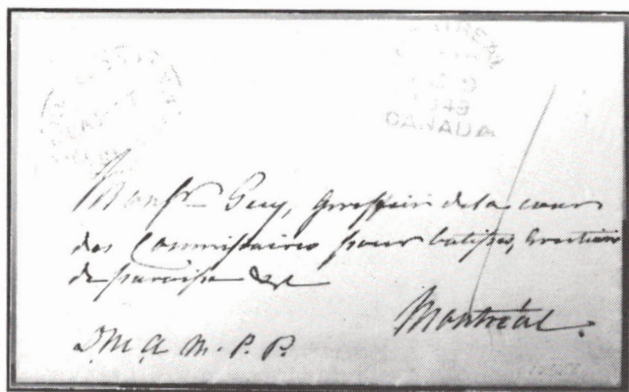 CANADA
Monsr Guy, Greffier de la cour
des Commissaires pour batisses,
de paroisse &c
Montréal.
D. M. A M. P. P.